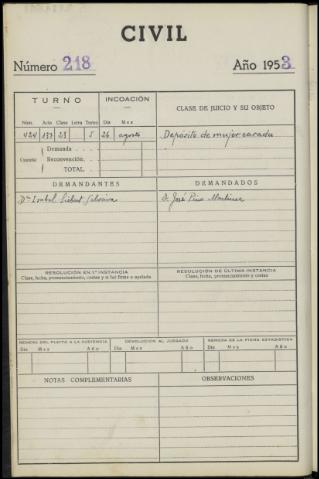 CIVIL
Número 218 Año 1953
TURNO INCOACIÓN CLASE DE JUICIO Y SU OBJETO
Núm. Acta Clase Letra Tomo Día Mes
424 133 23 5 26 agosto Depósito de mujer casada
Cuantía Demanda
Reconvención.
TOTAL.
DEMANDANTES DEMANDADOS
Dª Isabel D. José Pino Martínez
RESOLUCIÓN EN 1.ª INSTANCIA RESOLUCIÓN DE ÚLTIMA INSTANCIA
Clase, fecha, pronunciamiento, costas y si fué firme o apelada Clase, fecha, pronunciamiento y costas
REMISIÓN DEL PLEITO A LA AUDIENCIA DEVOLUCIÓN AL JUZGADO REMISIÓN DE LA FICHA ESTADÍSTICA
Día Mes Año Día Mes Año Día Mes Año
NOTAS COMPLEMENTARIAS OBSERVACIONES